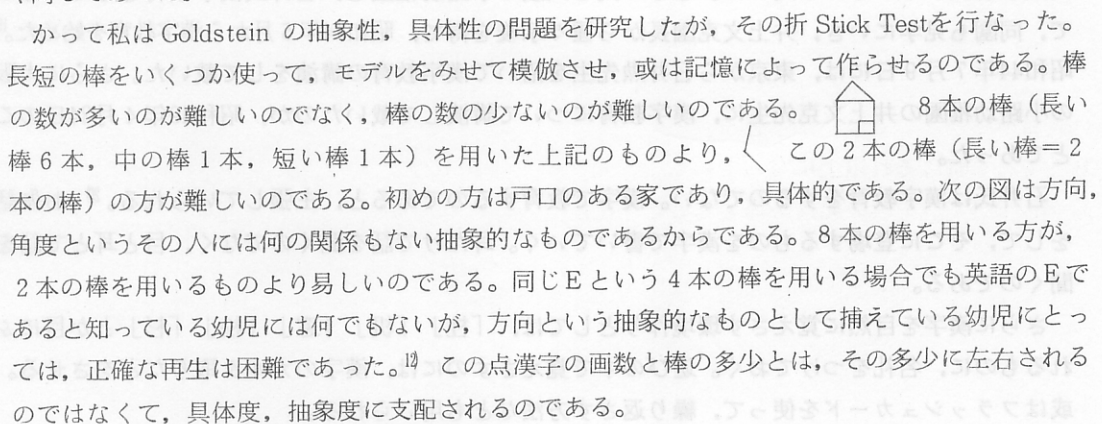 かって私は Goldstein の抽象性，具体性の問題を研究したが，その折 Stick Testを行なった。
長短の棒をいくつか使って，モデルをみせて模倣させ，或は記憶によって作らせるのである。棒
の数が多いのが難しいのでなく，棒の数の少ないのが難しいのである。 8本の棒（長い
棒6本，中の棒1本，短い棒1本）を用いた上記のものより， この2本の棒（長い棒＝2
本の棒）の方が難しいのである。初めの方は戸口のある家であり，具体的である。次の図は方向，
角度というその人には何の関係もない抽象的なものであるからである。8本の棒を用いる方が，
2本の棒を用いるものより易しいのである。同じEという4本の棒を用いる場合でも英語のEで
あると知っている幼児には何でもないが，方向という抽象的なものとして捕えている幼児にとっ
ては，正確な再生は困難であった。12) この点漢字の画数と棒の多少とは，その多少に左右される
のではなくて，具体度，抽象度に支配されるのである。